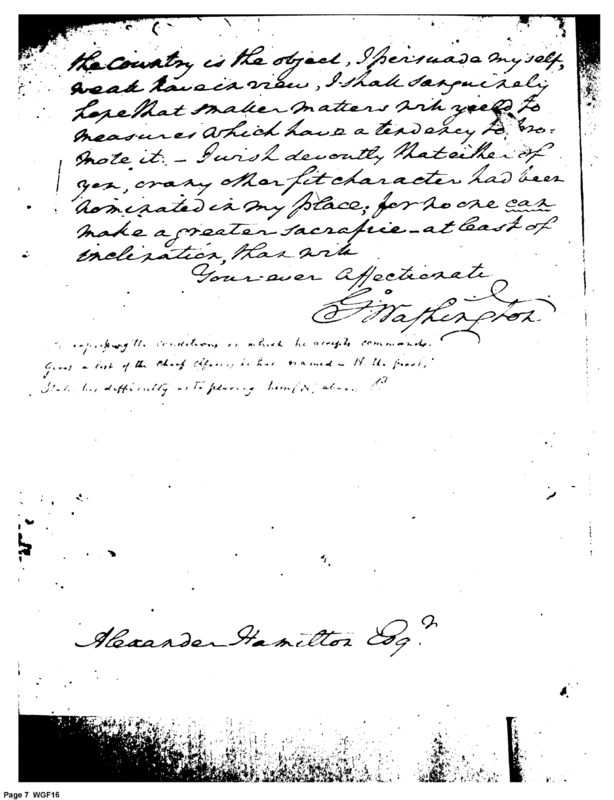 the Country is the object, I persuade myself,
we all have in view, I shall sanguinely
hope that smaller matters will yield to
measures which have a tendency to pro-
mote it. – I wish devoutly that either of
yen, or any other fit character had been
nominated in my place; for no one can
make a greater sacrafice – at least of
inclination, than will
Your ever Affectionate
Go Washington
expressing the conditions on which he accepts command.
Gives a list of the Chief Officers he has named – H. the first,
States his difficulty as to placing himself above
Alexander Hamilton Esqr.
Page 7 WGF16